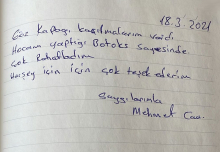 18.3.2021
Göz Kapağı kasılmalarım vardı
Hocanın yaptığı Botoks sayesinde
çok Rahatladım
Herşey için için çok teşekkür ederim
Saygılarımla
Mehmet Can